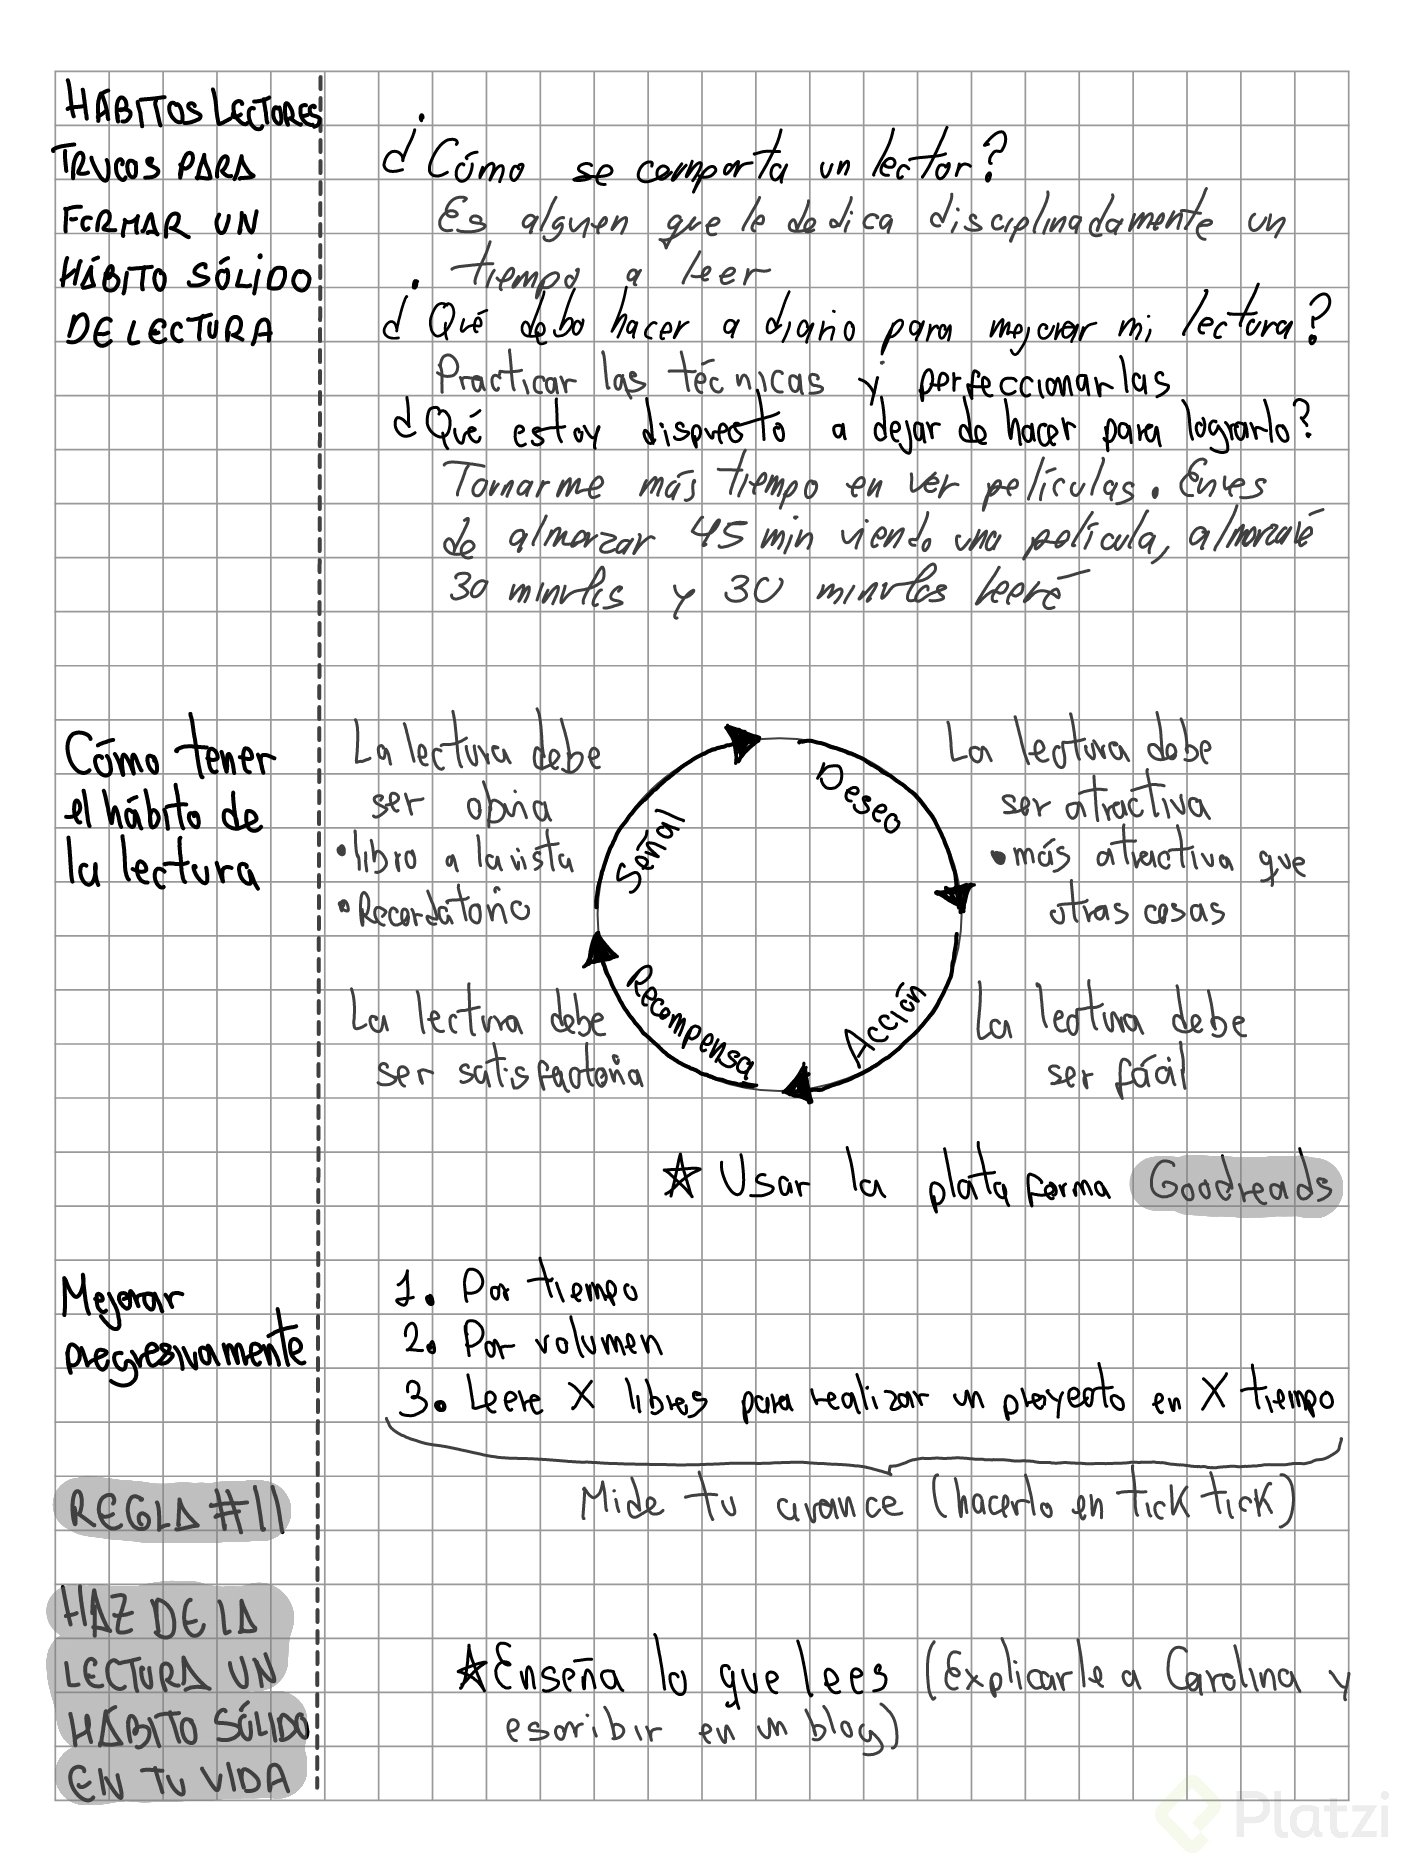 HÁBITOS LECTORES
TRUCOS PARA
FORMAR UN
HÁBITO SÓLIDO
DE LECTURA
¿Cómo se comporta un lector?
Es alguien que le dedica disciplinadamente un
tiempo a leer
¿Qué debo hacer a diario para mejorar mi lectura?
Practicar las técnicas y perfeccionarlas
¿Qué estoy dispuesto a dejar de hacer para lograrlo?
Tomarme más tiempo en ver películas. Enves
de almorzar 45 min viendo una película, almorzaré
30 minutos y 30 minutos leeré
Cómo tener
el hábito de
la lectura
La lectura debe
ser obvia
• libro a la vista
• Recordatorio
Señal
Deseo
La lectura debe
ser atractiva
• más atractiva que
otras cosas
La lectura debe
ser satisfactoria
Recompensa
Acción
La lectura debe
ser fácil
☆ Usar la plataforma Goodreads
Mejorar
progresivamente
1. Por tiempo
2. Por volumen
3. Leere X libros para realizar un proyecto en X tiempo
Mide tu avance (hacerlo en tick tick)
REGLA #11
HAZ DE LA
LECTURA UN
HÁBITO SÓLIDO
EN TU VIDA
☆ Enseña lo que lees (Explicarle a Carolina y
escribir en un blog)
Platzi